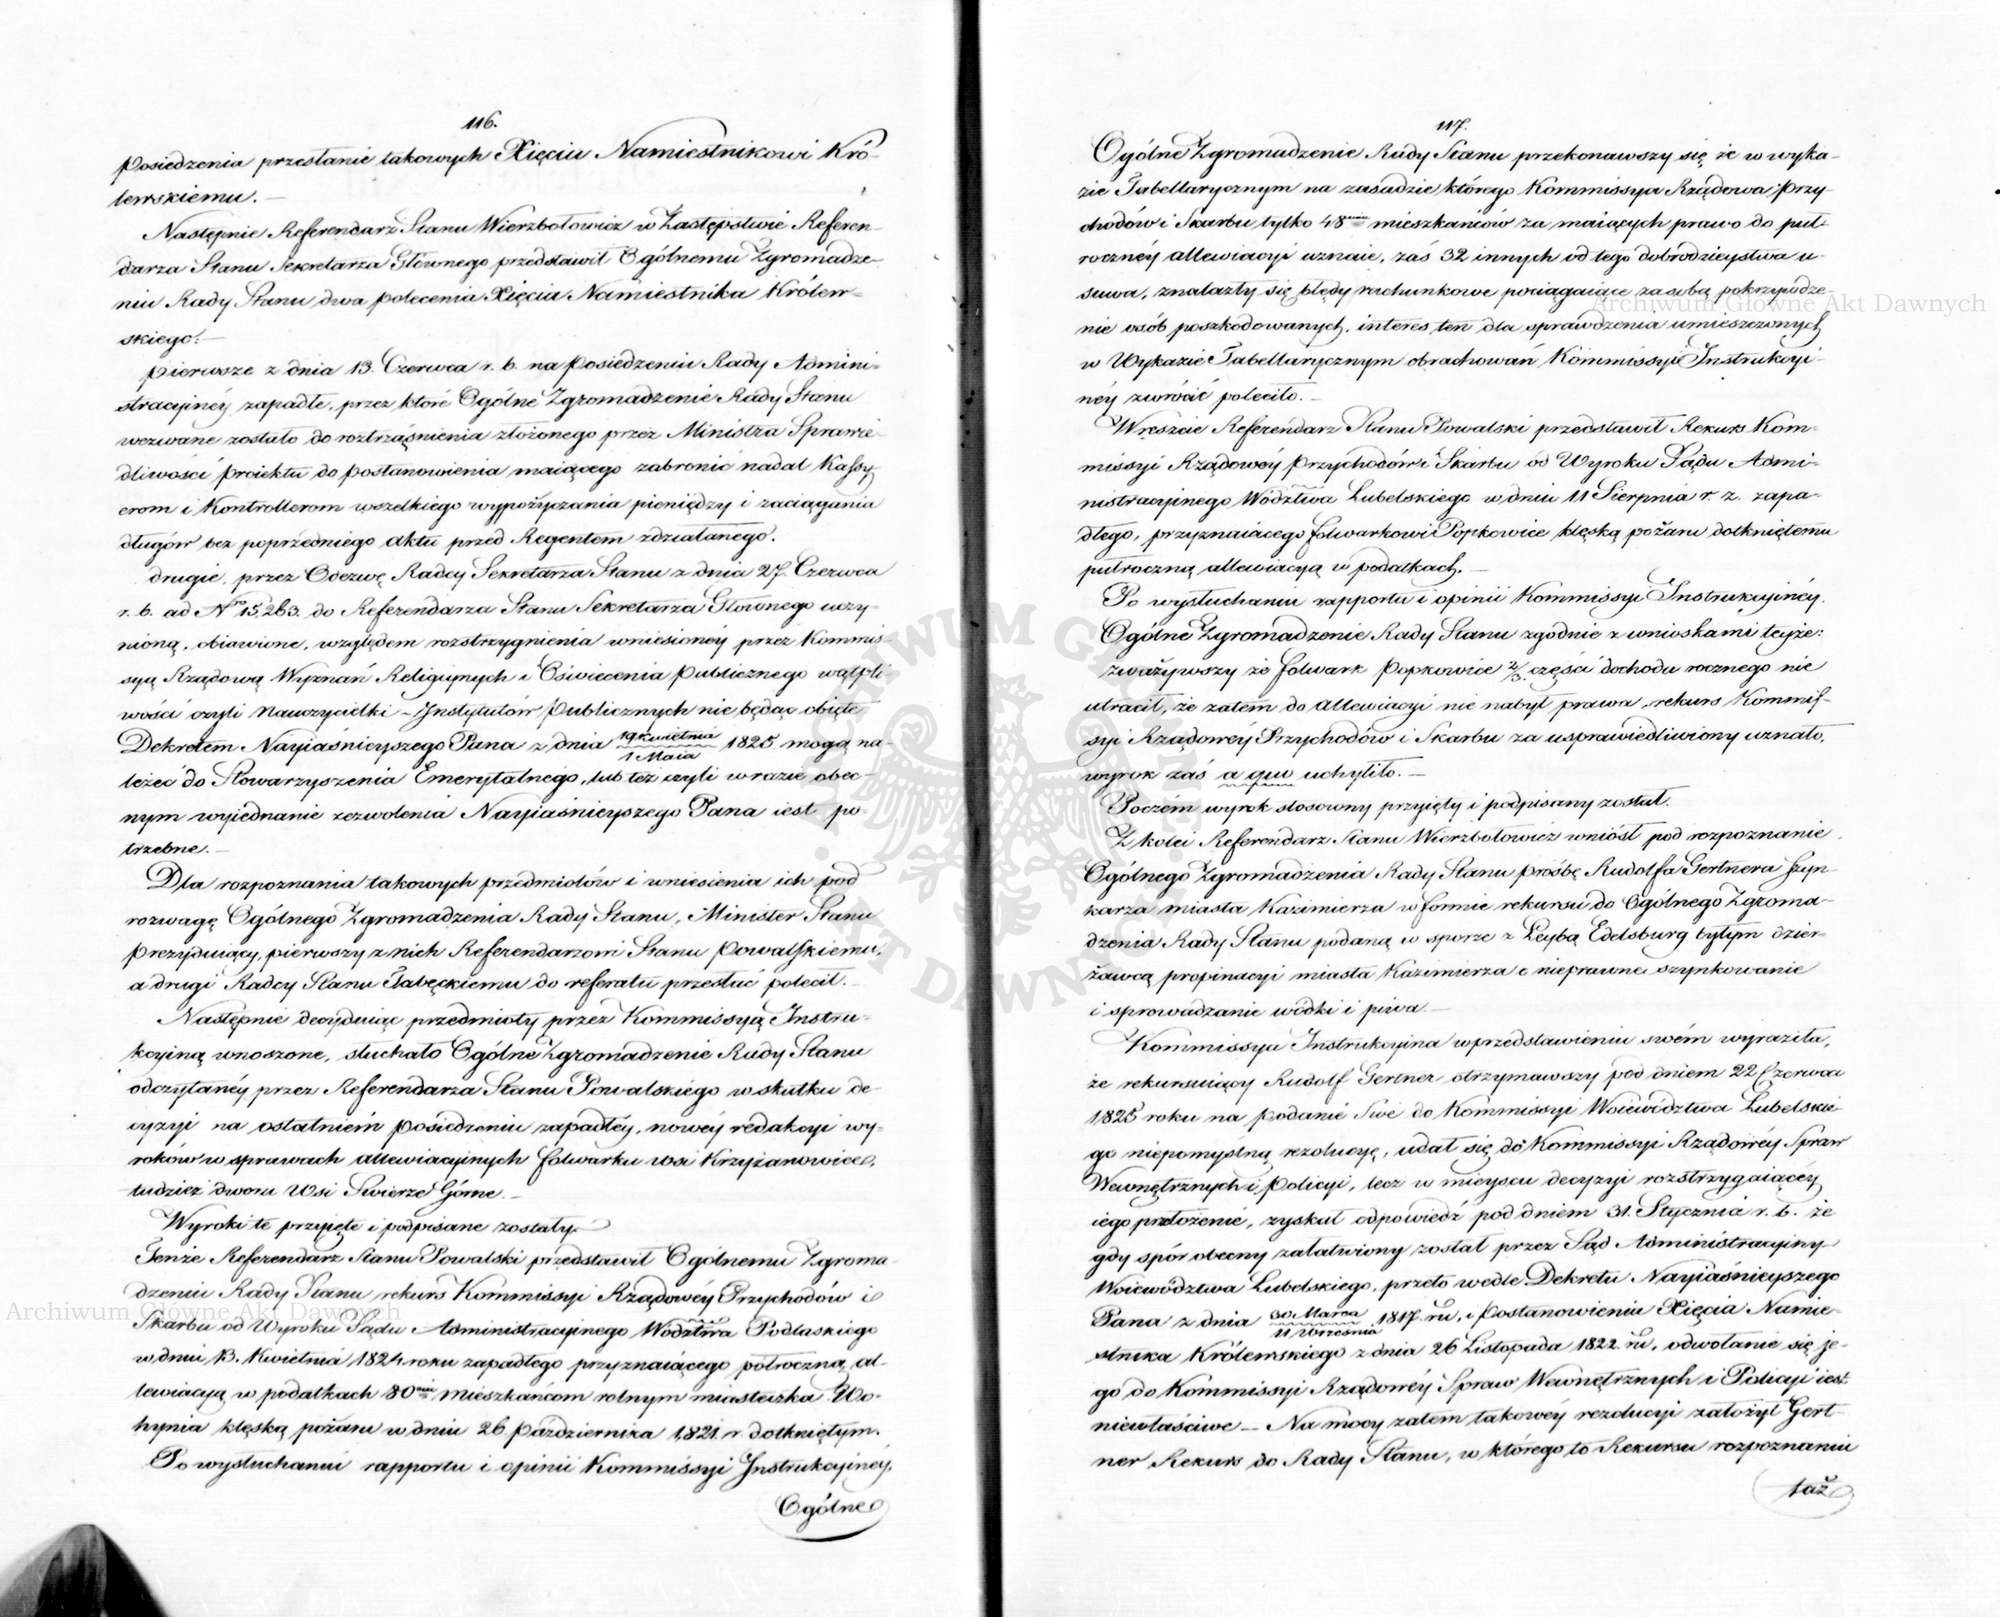 116.
posiedzenia przesłanie takowych Xięciu Namiestnikowi Kró-
lewskiemu. —
Następnie Referendarz Stanu Wierzbołowicz w Zastępstwie Referen-
darza Stanu Sekretarza Głównego przedstawił Ogólnemu Zgromadze-
niu Rady Stanu dwa polecenia Xięcia Namiestnika Królew-
skiego. —
pierwsze z dnia 13. Czerwca r. b. na posiedzeniu Rady Admini-
stracyjnéy zapadłe, przez które Ogólne Zgromadzenie Rady Stanu
wezwane zostało do roztrząśnienia złożonego przez Ministra Sprawie-
dliwości proiektu do postanowienia maiącego zabronić nadal Kassy-
erom i Kontrollerom wszelkiego wypożyczania pieniędzy i zaciągania
długów bez poprzedniego aktu przed Regentem zdziałanego.
drugie, przez Odezwę Radcy Sekretarza Stanu z dnia 27. Czerwca
r. b. ad No 15,263. do Referendarza Stanu Sekretarza Głównego uczy-
nioną, obiawione, względem rozstrzygnienia wniesionéy przez Kommis-
syą Rządową Wyznań Religijnych i Oświecenia Publicznego wątpli-
wości czyli Nauczycielki – Instytutów Publicznych nie będąc obięte
Dekretem Nayiaśnieyszego Pana z dnia 19 Kwietnia / 1 Maia 1825. mogą na-
leżeć do Stowarzyszenia Emerytalnego, lub też czyli w razie obec-
nym wyiednanie zezwolenia Nayiaśnieyszego Pana iest po-
trzebne. —
Dla rozpoznania takowych przedmiotów i wniesienia ich pod
rozwagę Ogólnego Zgromadzenia Rady Stanu, Minister Stanu
Prezyduiący, pierwszy z nich Referendarzowi Stanu Powalskiemu,
a drugi Radcy Stanu Łabęckiemu do referatu przesłać polecił. —
Następnie decyduiąc przedmioty przez Kommissyą Instru-
kcyiną wnoszone, słuchało Ogólne Zgromadzenie Rady Stanu
odczytanéy przez Referendarza Stanu Powalskiego w skutku de-
cyzyi na ostatniém posiedzeniu zapadłéy, nowéy redakcyi wy-
roków w sprawach allewiacyinych folwarku wsi Krzyżanowice,
tudzież dworu Wsi Świerże Górne. —
Wyroki te przyięte i podpisane zostały. —
Tenże Referendarz Stanu Powalski przedstawił Ogólnemu Zgroma-
dzeniu Rady Stanu rekurs Kommissyi Rządowéy Przychodów i
Skarbu od Wyroku Sądu Administracyinego Wództwa Podlaskiego
w dniu 13. Kwietnia 1824 roku zapadłego przyznaiącego półroczną al-
lewiacyą w podatkach 80ciu mieszkańcom rolnym miasteczka Wo-
hynia klęską pożaru w dniu 26 Października 1821. r. dotkniętym.
Po wysłuchaniu rapportu i opinii Kommissyi Instrukcyinéy.
Ogólne
117.
Ogólne Zgromadzenie Rady Stanu przekonawszy się że w wyka-
zie Tabellarycznym na zasadzie którego Kommissya Rządowa Przy-
chodów i Skarbu tylko 48miu mieszkańców za maiących prawo do pół-
rocznéy allewiacyi uznaie, zaś 32 innych od tego dobrodzieystwa u-
suwa, znalazły się błędy rachunkowe pociągaiące za sobą pokrzywdze-
nie osób poszkodowanych, interes ten dla sprawdzenia umieszczonych
w Wykazie Tabellarycznym obrachowań Kommissyi Instrukcyi-
néy zwrócić poleciło. —
Wreszcie Referendarz Stanu Powalski przedstawił Rekurs Kom-
missyi Rządowéy Przychodów i Skarbu od Wyroku Sądu Admi-
nistracyjnego Wództwa Lubelskiego w dniu 11 Sierpnia r. z. zapa-
dłego, przyznaiącego folwarkowi Popkowice klęską pożaru dotkniętemu
półroczną allewiacyą w podatkach. —
Po wysłuchaniu rapportu i opinii Kommissyi Instrukcyinéy.
Ogólne Zgromadzenie Rady Stanu zgodnie z wnioskami teyże:
zważywszy że folwark Popkowice 2/3. części dochodu rocznego nie
utracił, że zatem do allewiacyi nie nabył prawa, rekurs Kommis-
syi Rządowéy Przychodów i Skarbu za usprawiedliwiony uznało,
wyrok zaś a quo uchyliło. —
Poczém wyrok stosowny przyięty i podpisany został.
Z kolei Referendarz Stanu Wierzbołowicz wniósł pod rozpoznanie
Ogólnego Zgromadzenia Rady Stanu prośbę Rudolfa Gertnera Szyn-
karza miasta Kazimierza w formie rekursu do Ogólnego Zgroma-
dzenia Rady Stanu podaną w sporze z Leybą Edelsburg byłym dzier-
żawcą propinacyi miasta Kazimierza o nieprawne szynkowanie
i sprowadzanie wódki i piwa. —
Kommissya Instrukcyina w przedstawieniu swém wyraziła,
że rekursuiący Rudolf Gertner otrzymawszy pod dniem 22 Czerwca
1825 roku na podanie swe do Kommissyi Woiewództwa Lubelskie-
go niepomyślną rezolucyę, udał się do Kommissyi Rządowéy Spraw
Wewnętrznych i Policyi, lecz w mieyscu decyzyi rozstrzygaiącéy
iego przełożenie, zyskał odpowiedź pod dniem 31. Stycznia r. b. że
gdy spór obecny załatwiony został przez Sąd Administracyiny
Woiewództwa Lubelskiego, przeto wedle Dekretu Nayiaśnieyszego
Pana z dnia 30. Marca / 11 Września 1817. ru, i Postanowienia Xięcia Namie-
stnika Królewskiego z dnia 26 Listopada 1822. ru, odwołanie się je-
go do Kommissyi Rządowéy Spraw Wewnętrznych i Policyi iest
niewłaściwe — Na mocy zatem takowéy rezolucyi założył Gert-
ner Rekurs do Rady Stanu, w którego to Rekursu rozpoznaniu
taż
Archiwum Główne Akt Dawnych
Archiwum Główne Akt Dawnych
ARCHIWUM GŁÓWNE AKT DAWNYCH